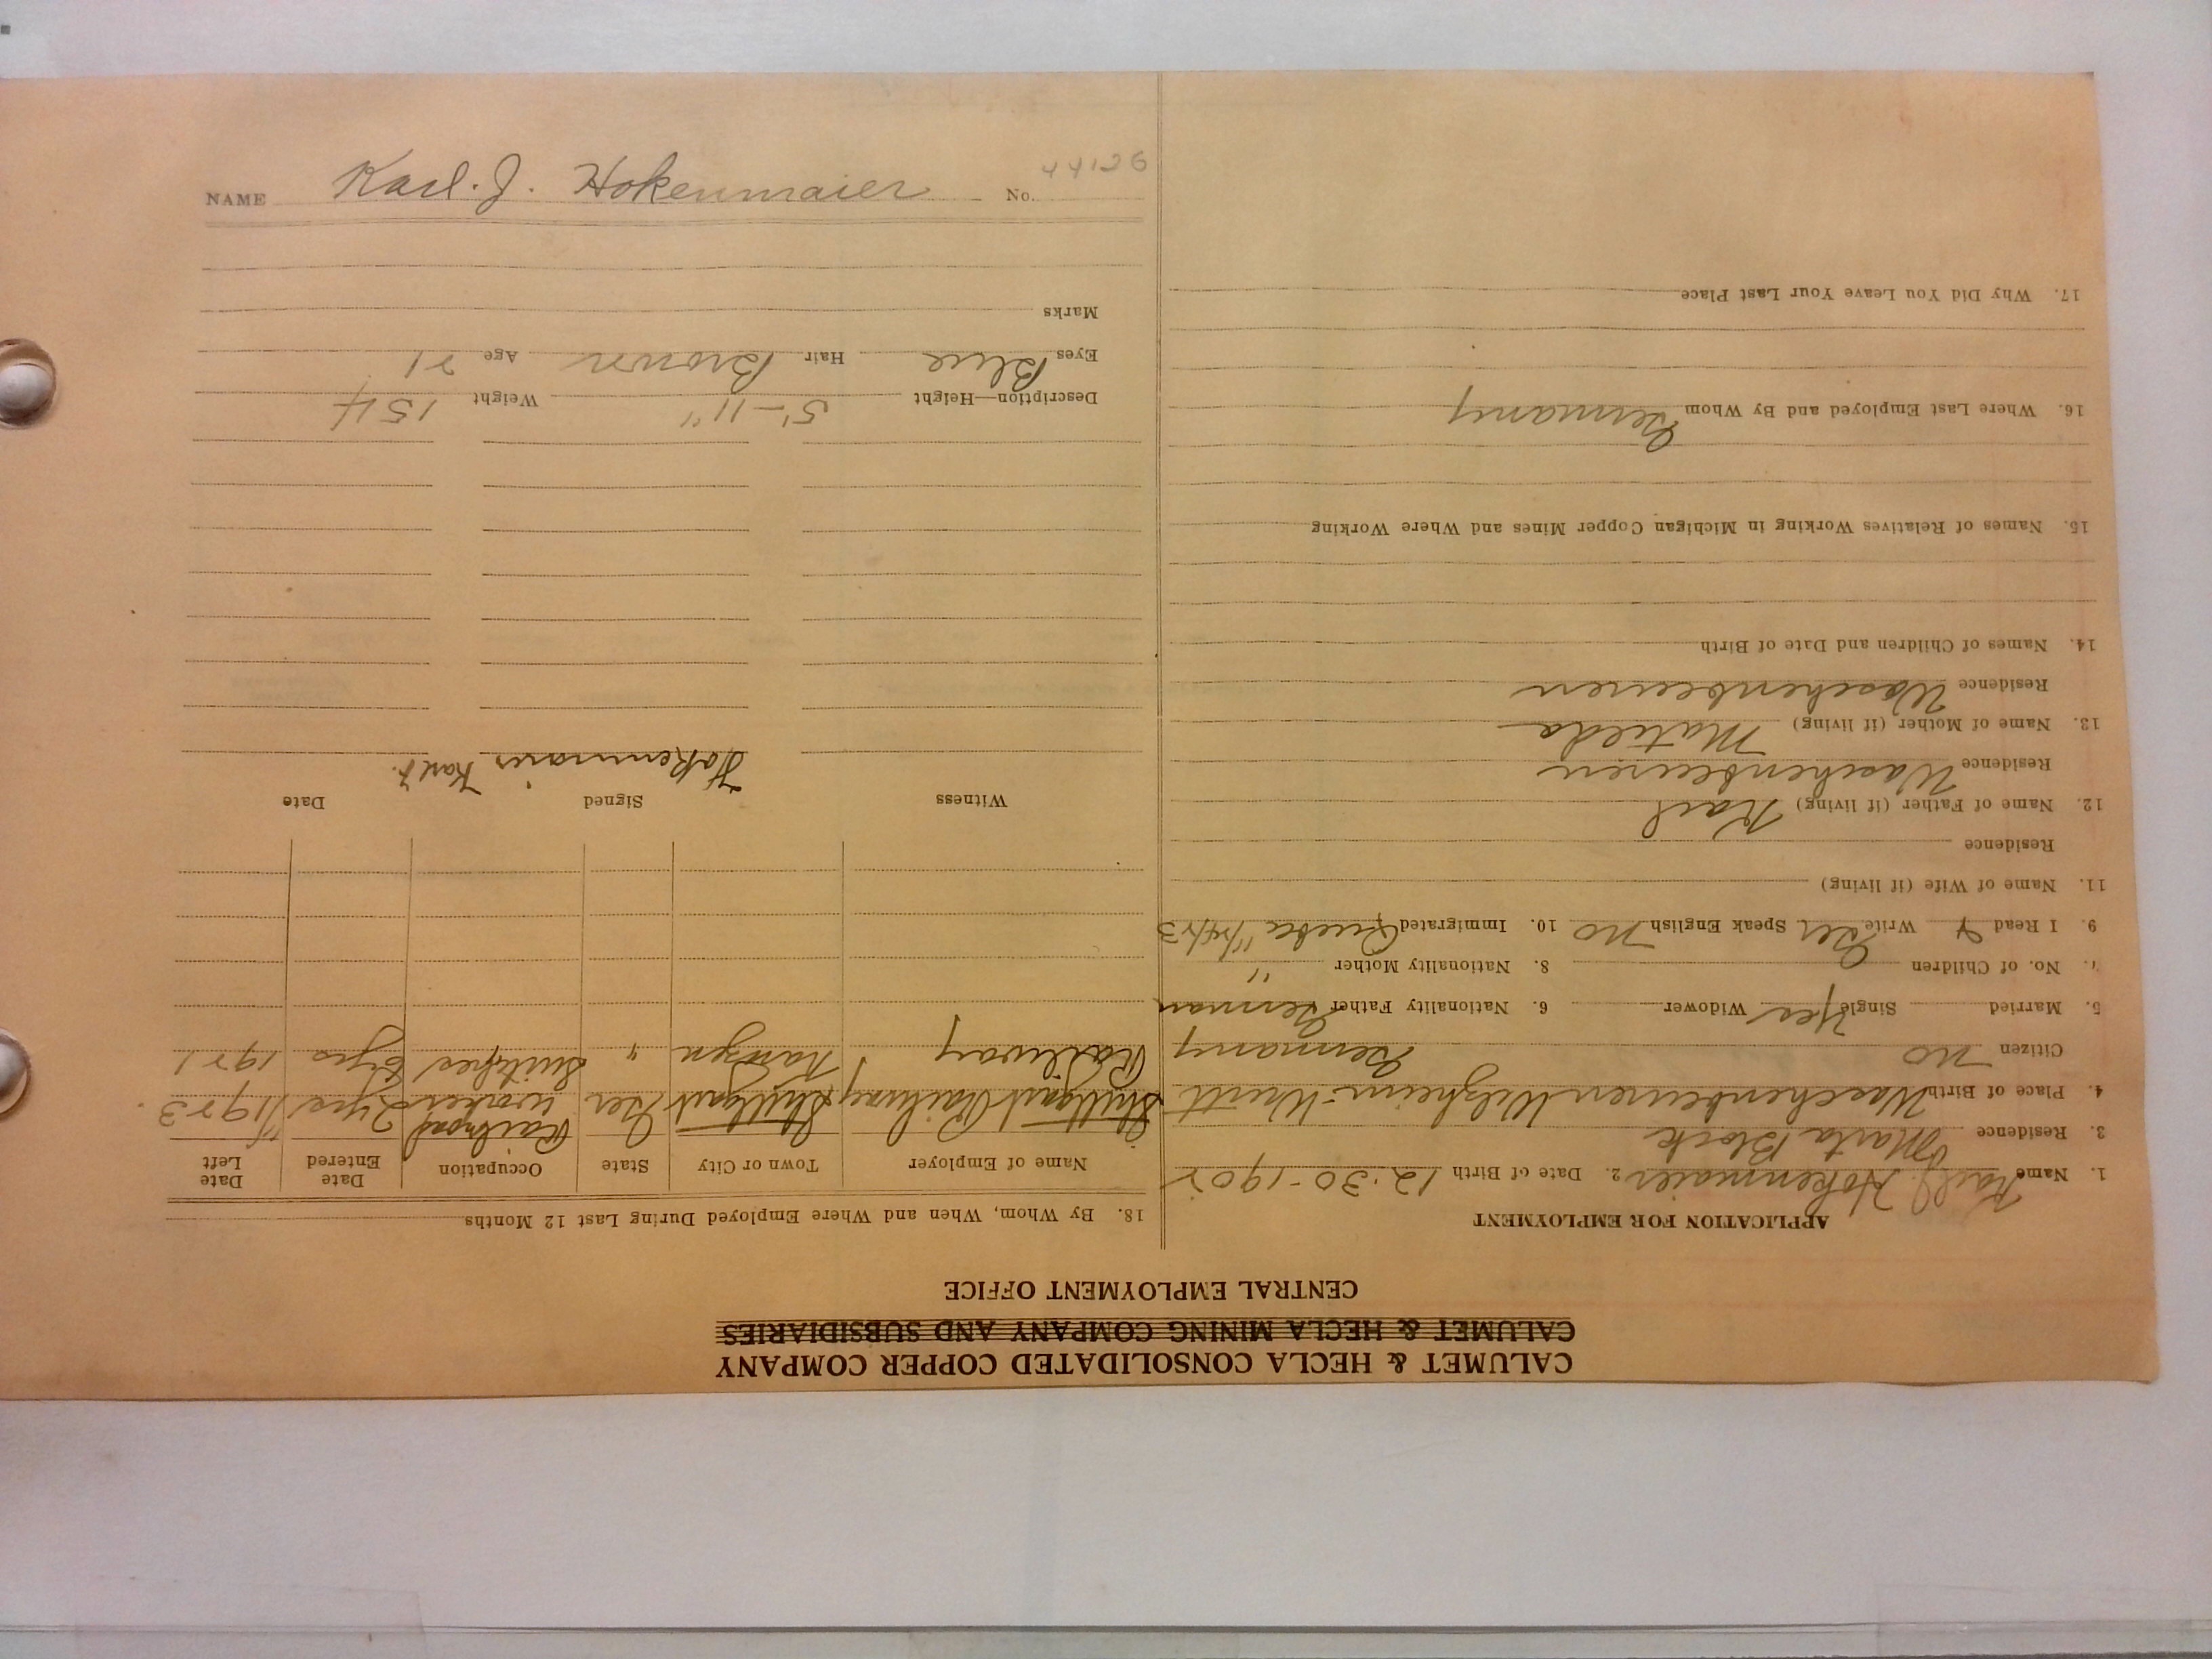 CALUMET & HECLA CONSOLIDATED COPPER COMPANY
CALUMET & HECLA MINING COMPANY AND SUBSIDIARIES
CENTRAL EMPLOYMENT OFFICE
APPLICATION FOR EMPLOYMENT
1. Name Karl J. Hokenmaier 2. Date of Birth 12-30-1902
3. Residence Marta Block
4. Place of Birth Waschenbeuren Welzheim-Wurtt
Citizen no Germany
5. Married Single Yes Widower 6. Nationality Father German
7. No. of Children 8. Nationality Mother "
9. I Read & Write Ger Speak English no 10. Immigrated Quebec 11/24/23
11. Name of Wife (if living)
Residence
12. Name of Father (if living) Karl
Residence Waschenbeuren
13. Name of Mother (if living) Matilda
Residence Waschenbeuren
14. Names of Children and Date of Birth
15. Names of Relatives Working in Michigan Copper Mines and Where Working
16. Where Last Employed and By Whom Germany
17. Why Did You Leave Your Last Place
18. By Whom, When and Where Employed During Last 12 Months
Name of Employer Town or City State Occupation Date Entered Date Left
Stuttgart Railway Stuttgart Ger Railroad worker 2 yrs 1923
Railway " 1921
Witness Signed Date
Hokenmaier Karl J.
Description—Height 5'-11" Weight 154
Eyes Blue Hair Brown Age 21
Marks
NAME Karl. J. Hokenmaier No. 44126